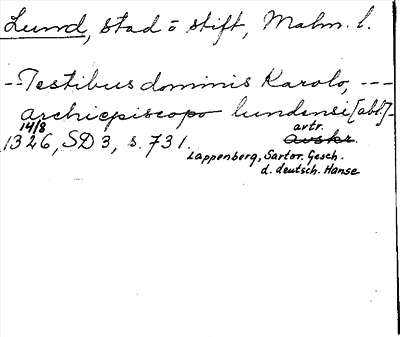 Lund, stad o stift, Malm. l.
-- Testibus dominis Karolo, ---
archiepiscopo lundensi [abl.] -
14/8 avtr.
1326, SD 3, s. 731. Avskr.
Lappenberg, Sartor. Gesch.
d. deutsch. Hanse